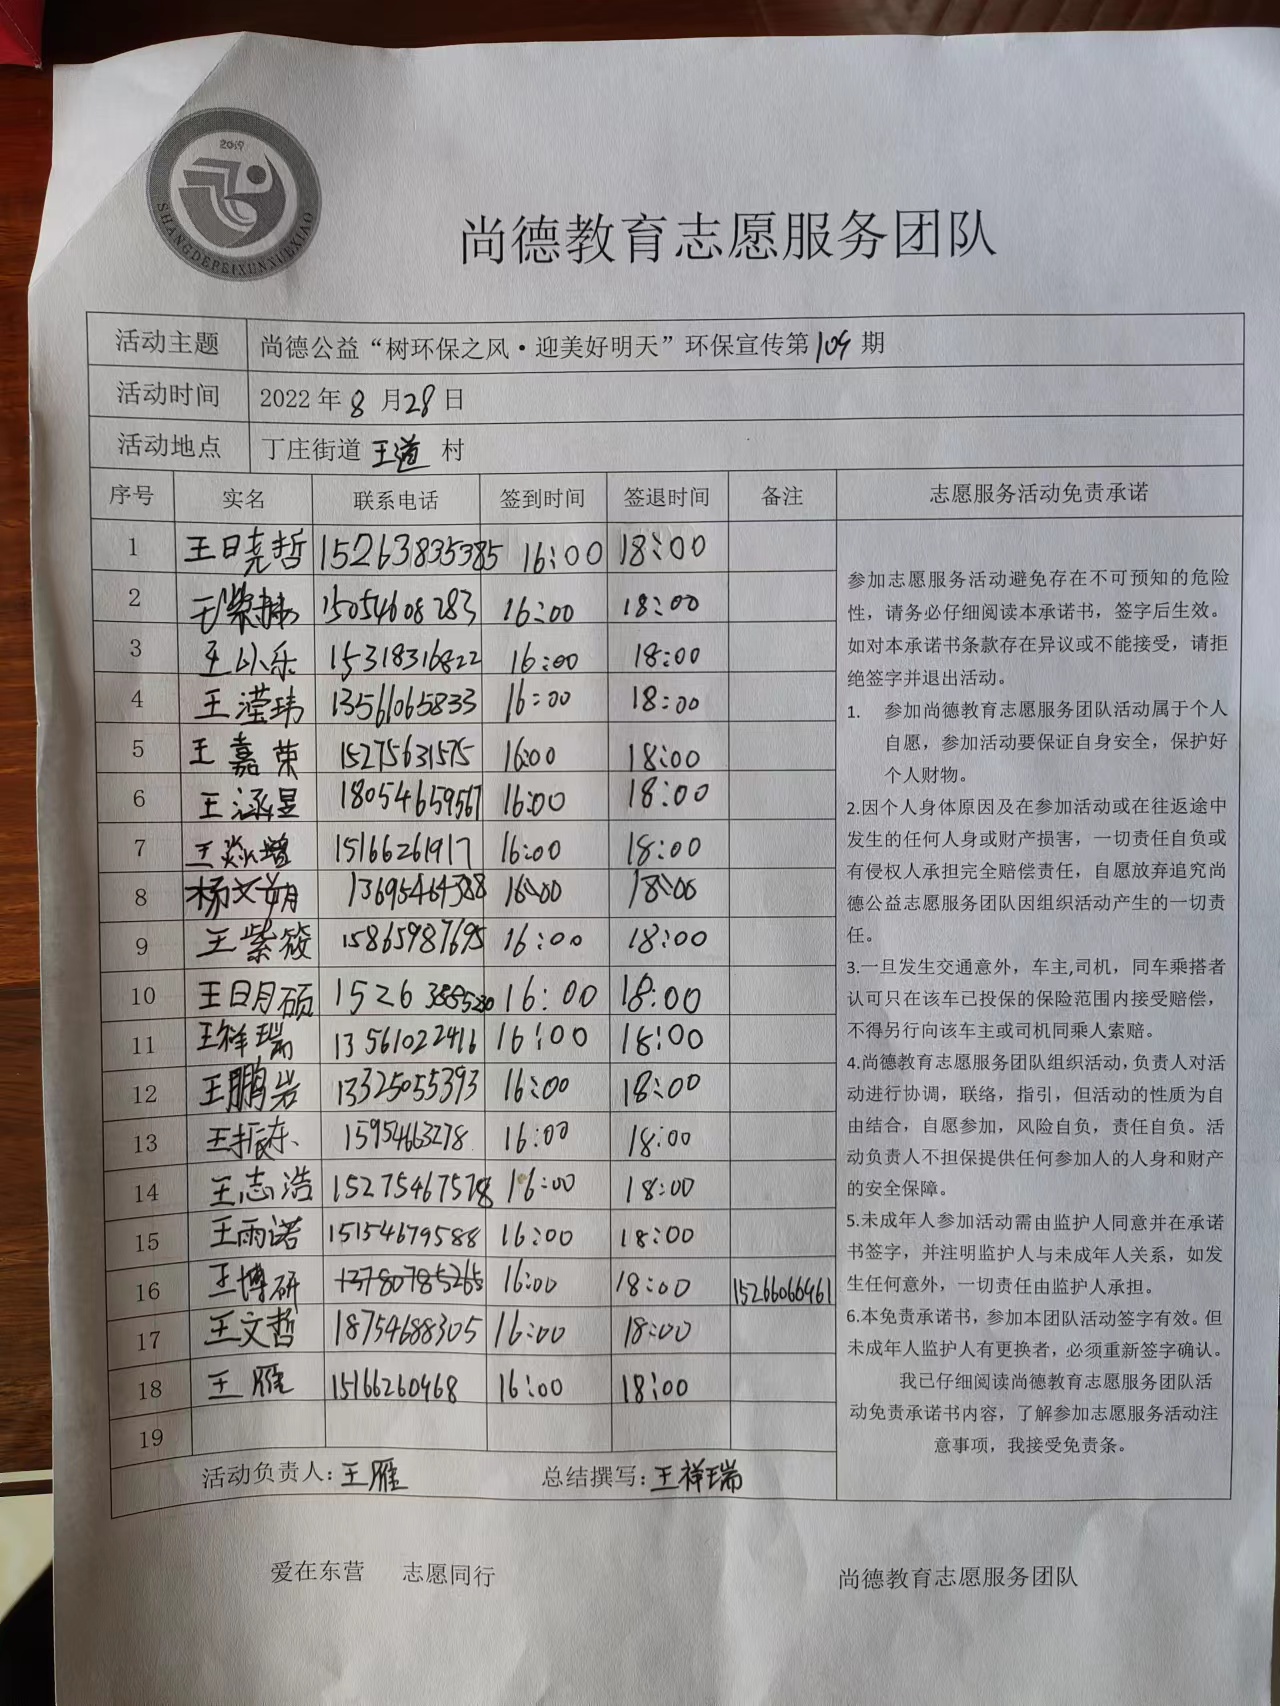 2019
SHANGDEPEIXUNXUEXIAO
尚德教育志愿服务团队
活动主题 尚德公益“树环保之风·迎美好明天”环保宣传第109期
活动时间 2022年8月28日
活动地点 丁庄街道王道村
序号 实名 联系电话 签到时间 签退时间 备注 志愿服务活动免责承诺
1 王日尧哲 15263835385 16:00 18:00
2 15054608283 16:00 18:00
3 王小乐 15318316822 16:00 18:00
4 王滢玮 13561065833 16:00 18:00
5 王嘉荣 15275631575 16:00 18:00
6 王涵昱 18054659567 16:00 18:00
7 王焱增 15166261917 16:00 18:00
8 杨文娟 13695464388 16:00 18:00
9 王紫筱 15865987695 16:00 18:00
10 王日月硕 16:00 18:00
11 王祥瑞 13561022416 16:00 18:00
12 王鹏岩 13325055393 16:00 18:00
13 王振东 15954663278 16:00 18:00
14 王志浩 15275467578 16:00 18:00
15 王雨诺 15154679588 16:00 18:00
16 王博研 13780785265 16:00 18:00 15266066461
17 王文哲 18754688305 16:00 18:00
18 王雁 15166260468 16:00 18:00
19
参加志愿服务活动避免存在不可预知的危险
性，请务必仔细阅读本承诺书，签字后生效。
如对本承诺书条款存在异议或不能接受，请拒
绝签字并退出活动。
1. 参加尚德教育志愿服务团队活动属于个人
自愿，参加活动要保证自身安全，保护好
个人财物。
2.因个人身体原因及在参加活动或在往返途中
发生的任何人身或财产损害，一切责任自负或
有侵权人承担完全赔偿责任，自愿放弃追究尚
德公益志愿服务团队因组织活动产生的一切责
任。
3.一旦发生交通意外，车主,司机，同车乘搭者
认可只在该车已投保的保险范围内接受赔偿，
不得另行向该车主或司机同乘人索赔。
4.尚德教育志愿服务团队组织活动，负责人对活
动进行协调，联络，指引，但活动的性质为自
由结合，自愿参加，风险自负，责任自负。活
动负责人不担保提供任何参加人的人身和财产
的安全保障。
5.未成年人参加活动需由监护人同意并在承诺
书签字，并注明监护人与未成年人关系，如发
生任何意外，一切责任由监护人承担。
6.本免责承诺书，参加本团队活动签字有效。但
未成年人监护人有更换者，必须重新签字确认。
我已仔细阅读尚德教育志愿服务团队活
动免责承诺书内容，了解参加志愿服务活动注
意事项，我接受免责条。
活动负责人：王雁 总结撰写：王祥瑞
爱在东营 志愿同行 尚德教育志愿服务团队